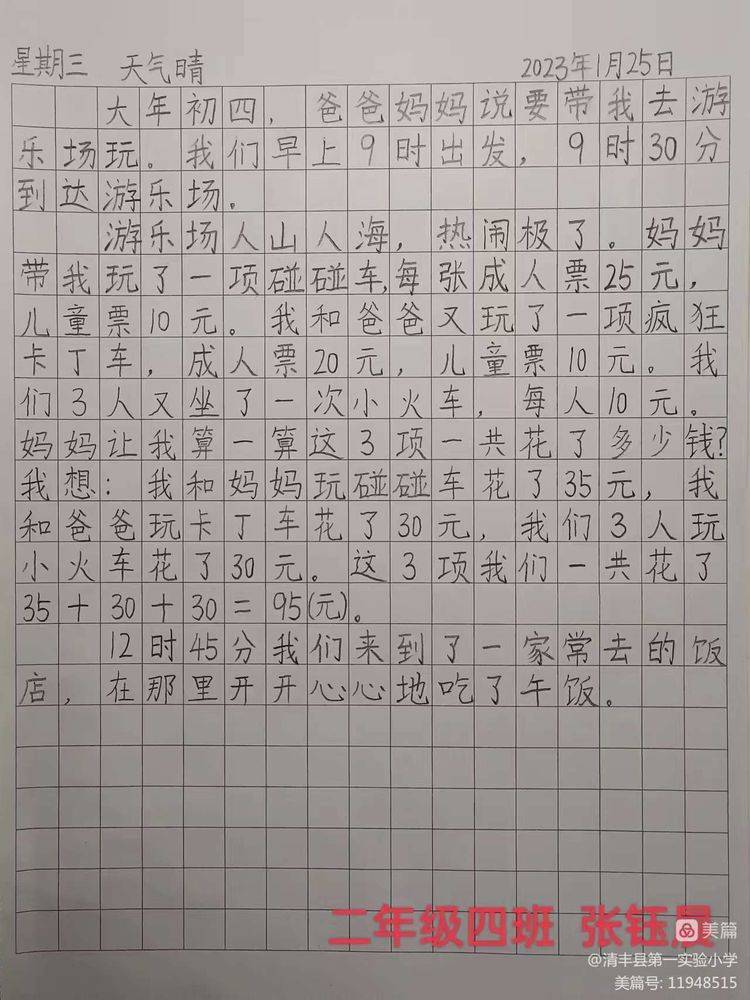 星期三 天气晴 2023年1月25日
大年初四，爸爸妈妈说要带我去游
乐场玩。我们早上9时出发，9时30分
到达游乐场。
游乐场人山人海，热闹极了。妈妈
带我玩了一项碰碰车,每张成人票25元，
儿童票10元。我和爸爸又玩了一项疯狂
卡丁车，成人票20元，儿童票10元。我
们3人又坐了一次小火车，每人10元。
妈妈让我算一算这3项一共花了多少钱?
我想：我和妈妈玩碰碰车花了35元，我
和爸爸玩卡丁车花了30元，我们3人玩
小火车花了30元。这3项我们一共花了
35＋30＋30＝95(元)。
12时45分我们来到了一家常去的饭
店，在那里开开心心地吃了午饭。
二年级四班 张钰晨
美篇
@清丰县第一实验小学
美篇号: 11948515